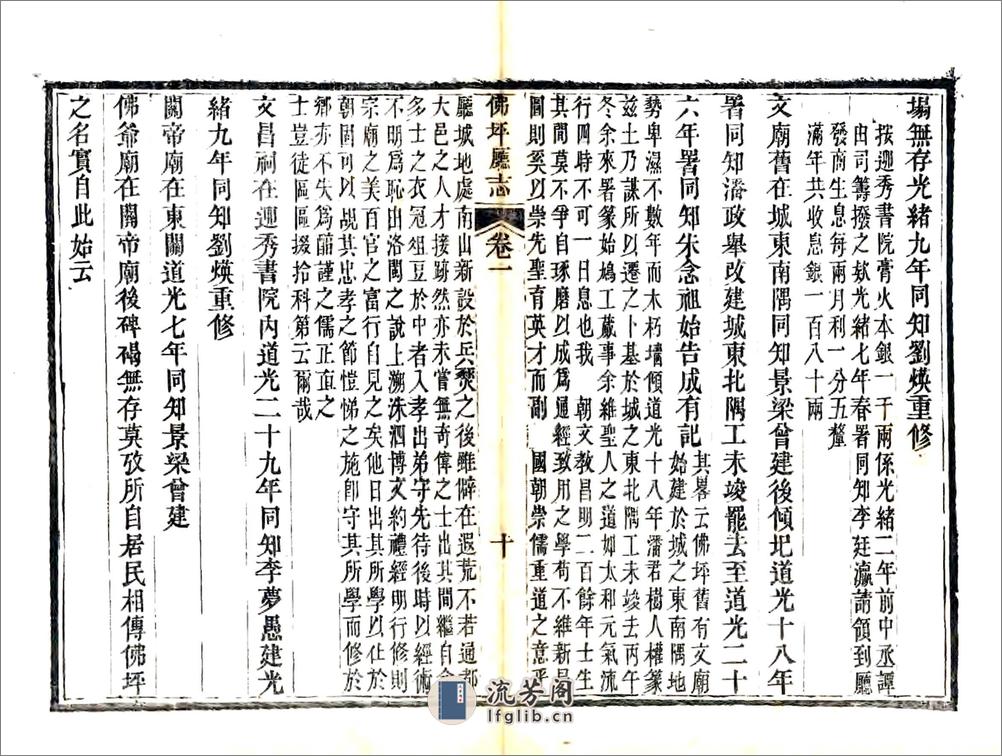 塌無存光緒九年同知劉煐重修
按迎秀書院膏火本銀一千兩係光緒二年前中丞譚
由司籌撥之欵光緒七年春署同知李廷瀛請領到廳
發商生息每兩月利一分五釐
滿年共收息銀一百八十兩
文廟舊在城東南隅同知景梁曾建後傾圯道光十八年
署同知潘政舉改建城東北隅工未竣罷去至道光二十
六年署同知朱念祖始告成有記
其畧云佛坪舊有文廟
始建於城之東南隅地
勢卑濕不數年而木朽墻傾道光十八年潘君樹人權篆
茲土乃謀所以遷之卜基於城之東北隅工未竣去丙午
冬余來署篆始鳩工蕆事余維聖人之道如太和元氣流
行四時不可一日息也我 朝文教昌明二百餘年士生
其間莫不爭自琢磨以成爲通經致用之學苟不維新是
圖則奚以崇先聖育英才而副 國朝崇儒重道之意乎
佛坪廳志 卷一 十
廳城地處南山新設於兵燹之後雖僻在遐荒不若通都
大邑之人才接跡然亦未嘗無奇偉之士出其間繼自今
多士之衣冠俎豆於中者入孝出弟守先待後時以經術
不明爲恥出洛閩之說上溯洙泗博文約禮經明行修則
宗廟之美百官之富行自見之矣他日出其所學以仕於
朝固可以覘其忠孝之節愷悌之施卽守其所學而修於
鄉亦不失爲醇謹之儒正直之
士豈徒區區掇拾科第云爾哉
文昌祠在迎秀書院內道光二十九年同知李夢愚建光
緒九年同知劉煐重修
關帝廟在東關道光七年同知景梁曾建
佛爺廟在關帝廟後碑碣無存莫攷所自居民相傳佛坪
之名實自此始云
流芳閣
lfglib.cn